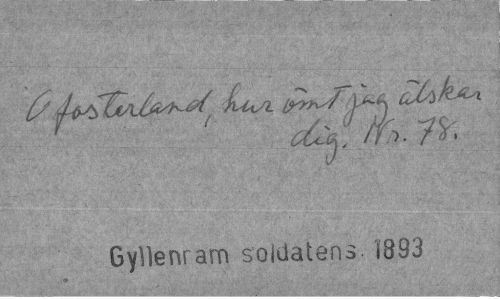 O fosterland, hur ömt jag älskar
dig. Nr. 78.
Gyllenram soldatens. 1893